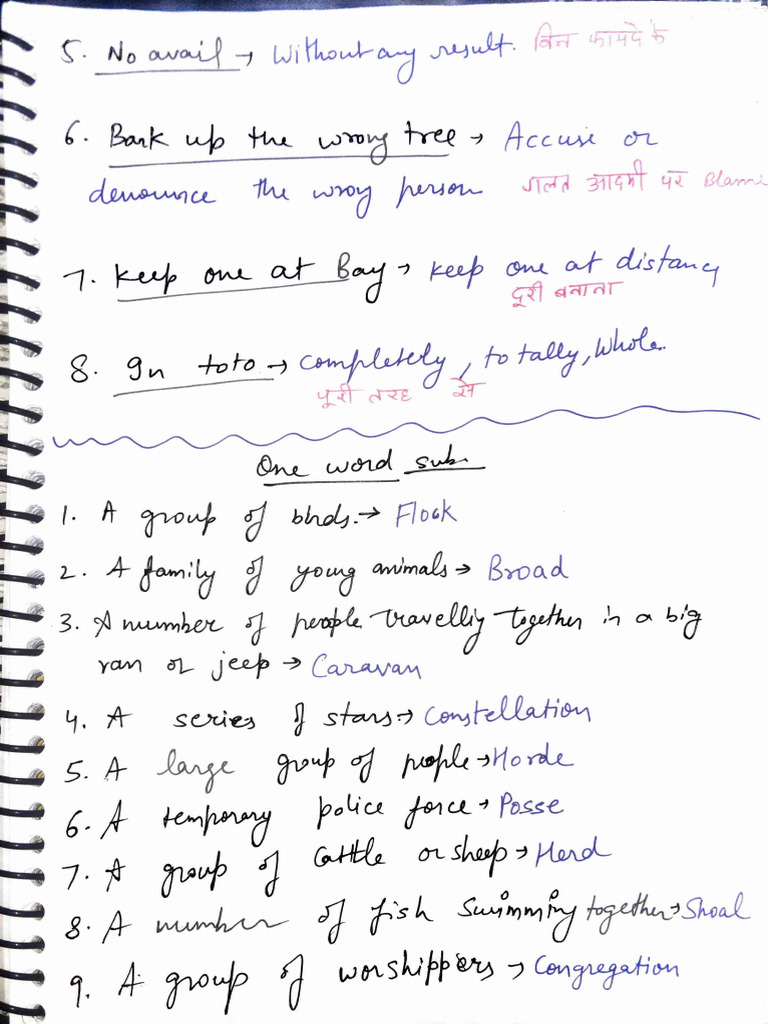 5. No avail → Without any result. बिना फायदे के
6. Bark up the wrong tree → Accuse or
denounce the wrong person गलत आदमी पर Blami
7. Keep one at Bay → keep one at distancy
दूरी बनाना
8. In toto → completely, totally, whole.
पूरी तरह से
One word sub.
1. A group of birds. → Flock
2. A family of young animals → Broad
3. A number of people travelling together in a big
van or jeep → Caravan
4. A series of stars → Constellation
5. A large group of people → Horde
6. A temporary police force → Posse
7. A group of Cattle or sheep → Herd
8. A number of fish swimming together → Shoal
9. A group of worshippers → Congregation